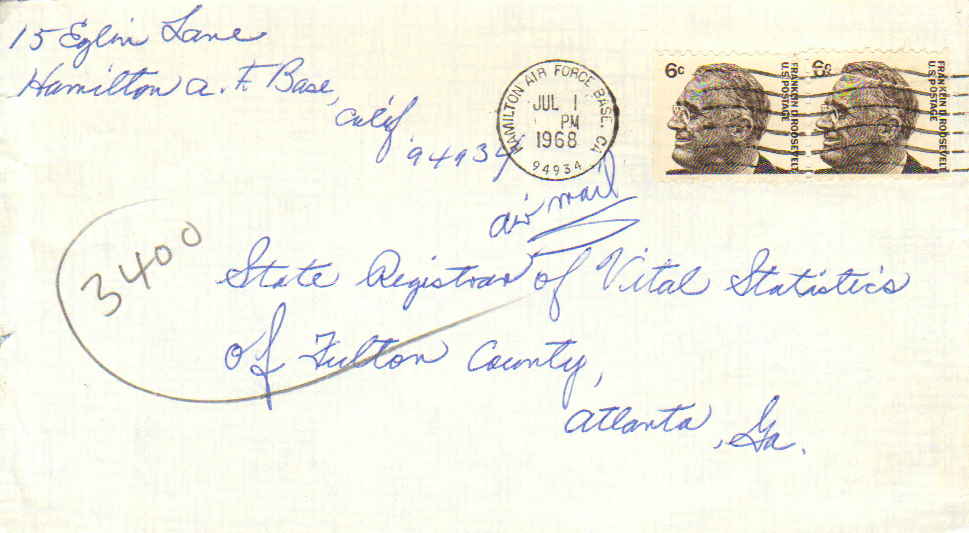 15 Eglin Lane
Hamilton A. F. Base,
Calif.
94934
HAMILTON AIR FORCE BASE, CA
JUL 1
PM
1968
94934
6c
FRANKLIN D. ROOSEVELT
U.S. POSTAGE
6c
FRANKLIN D. ROOSEVELT
U.S. POSTAGE
air mail
3400
State Registrar of Vital Statistics
of Fulton County,
Atlanta, Ga.